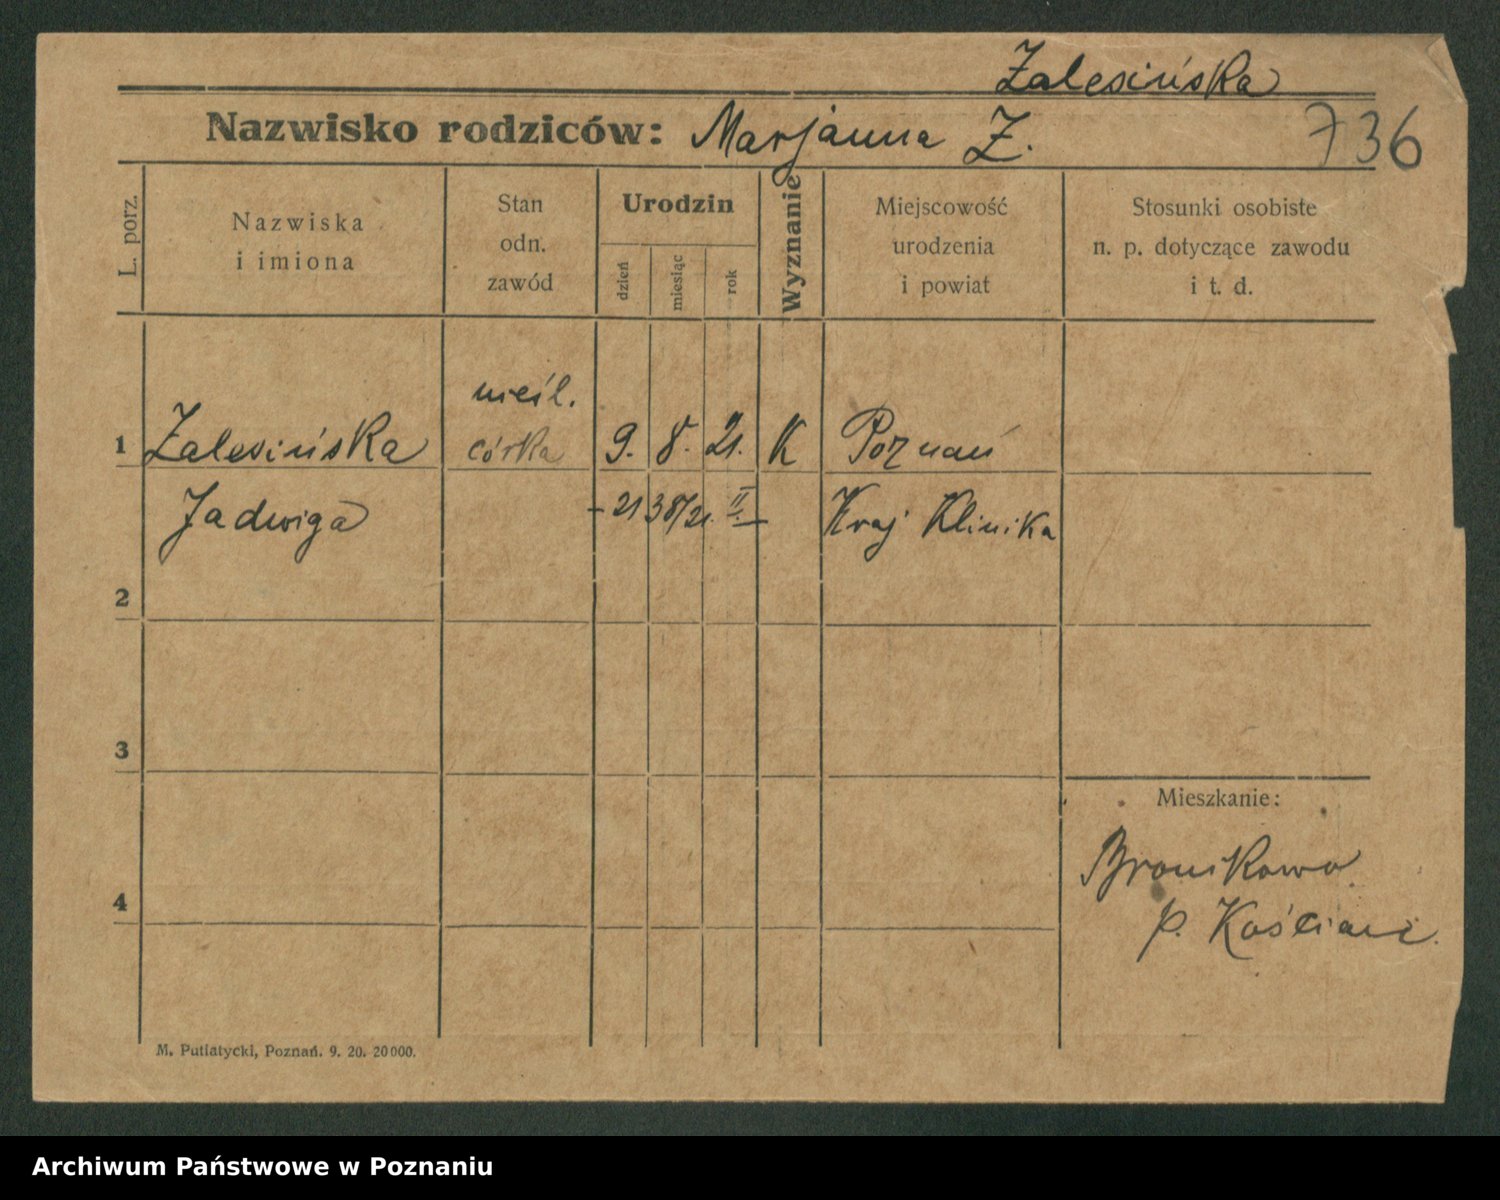 Zalesińska
Nazwisko rodziców: Marjanna Z.
736
L. porz.
Nazwiska
i imiona
Stan
odn.
zawód
Urodzin
dzień
miesiąc
rok
Wyznanie
Miejscowość
urodzenia
i powiat
Stosunki osobiste
n. p. dotyczące zawodu
i t. d.
nieśl.
1 Zalesińska córka 9. 8. 21. K Poznań
Jadwiga 21 38/21. II. Kraj Klinika
2
3
Mieszkanie:
Bronikowo
4
p. Kościan
M. Putiatycki, Poznań. 9. 20. 20000.
Archiwum Państwowe w Poznaniu